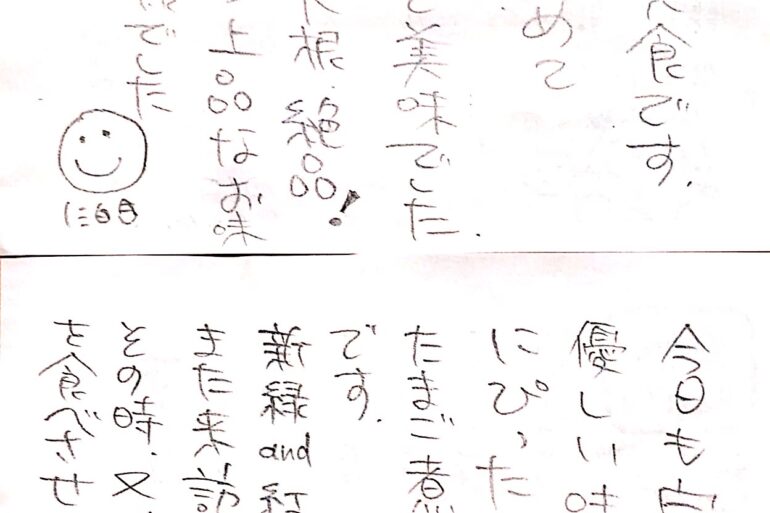 食です.
めて
美味でした.
根.絶品!
上品なお味
でした
に白目
今日も
優しい味
にぴった
たまご煮
です.
新緑and紅
また来訪
その時.又.
を食べさせ